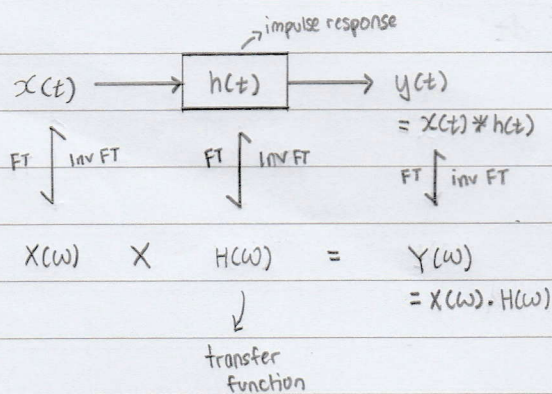 impulse response
x(t) h(t) y(t)
= x(t) * h(t)
FT inv FT FT inv FT FT inv FT
X(ω) X H(ω) = Y(ω)
= X(ω) . H(ω)
transfer
function